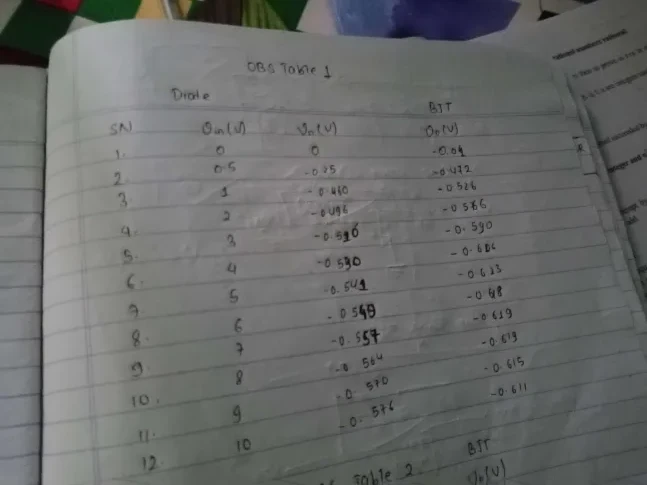 OBS Table 1
Diode BJT
SN Vin(V) Vo(V) Vo(V)
1. 0 0 -0.01
2. 0.5 -0.05 -0.472
3. 1 -0.460 -0.526
4. 2 -0.496 -0.566
5. 3 -0.516 -0.590
6. 4 -0.530 -0.606
7. 5 -0.541 -0.613
8. 6 -0.549 -0.618
9. 7 -0.557 -0.619
10. 8 -0.564 -0.619
11. 9 -0.570 -0.615
12. 10 -0.576 -0.611
Table 2 BJT
Vo(V)
rational numbers